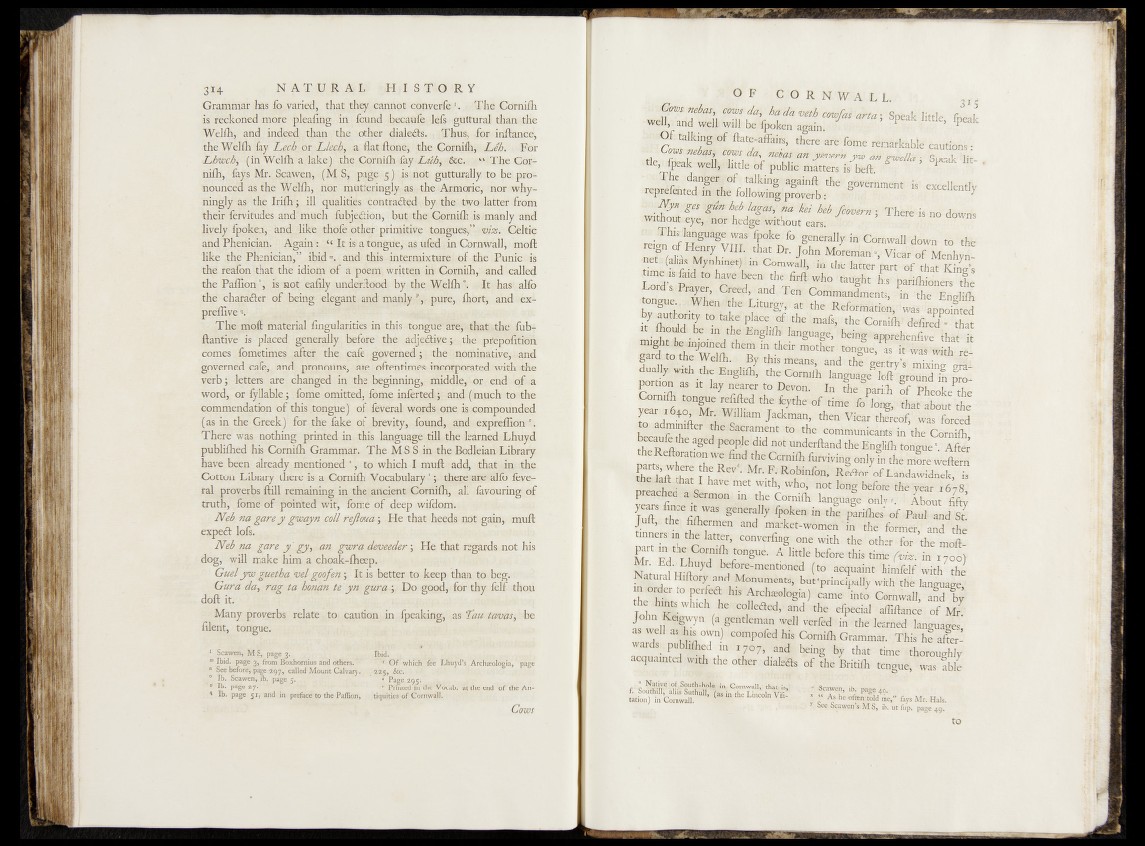 314 NATURAL HISTORY
Grammar has ſo varied, that they cannot converſe ˡ. The Corniſh
is reckoned more pleaſing in ſound becauſe leſs guttural than the
Welſh, and indeed than the other dialects. Thus, for inſtance,
the Welſh ſay Lech or Llech, a flat ſtone, the Corniſh, Lêh. For
Lhwch, (in Welſh a lake) the Corniſh ſay Lûh, &c. “ The Cor-
niſh, ſays Mr. Scawen, (M S, page 5) is not gutturally to be pro-
nounced as the Welſh, nor mutteringly as the Armoric, nor why-
ningly as the Iriſh ; ill qualities contracted by the two latter from
their ſervitudes and much ſubjection, but the Corniſh is manly and
lively ſpoken, and like thoſe other primitive tongues,” viz. Celtic
and Phenician. Again : “ It is a tongue, as uſed in Cornwall, moſt
like the Phenician,” ibid ᵐ. and this intermixture of the Punic is
the reaſon that the idiom of a poem written in Corniſh, and called
the Paſſion ⁿ, is not eaſily underſtood by the Welſh ᵒ. It has alſo
the character of being elegant and manly ᵖ, pure, ſhort, and ex-
preſſive ᑫ.
The moſt material ſingularities in this tongue are, that the ſub-
ſtantive is placed generally before the adjective ; the prepoſition
comes ſometimes after the caſe governed ; the nominative, and
governed caſe, and pronouns, are oftentimes incorporated with the
verb ; letters are changed in the beginning, middle, or end of a
word, or ſyllable ; ſome omitted, ſome inſerted ; and (much to the
commendation of this tongue) of ſeveral words one is compounded
(as in the Greek) for the ſake of brevity, ſound, and expreſſion ʳ.
There was nothing printed in this language till the learned Lhuyd
publiſhed his Corniſh Grammar. The M S S in the Bodleian Library
have been already mentioned ˢ, to which I muſt add, that in the
Cotton Library there is a Corniſh Vocabulary ᵗ ; there are alſo ſeve-
ral proverbs ſtill remaining in the ancient Corniſh, all ſavouring of
truth, ſome of pointed wit, ſome of deep wiſdom.
Neb na gare y gwayn coll reſtoua ; He that heeds not gain, muſt
expect loſs.
Neb na gare y gy, an gwra deveeder ; He that regards not his
dog, will make him a choak-ſheep.
Guel yw guetha vel goofen ; It is better to keep than to beg.
Gura da, rag ta honan te yn gura ; Do good, for thy ſelf thou
doſt it.
Many proverbs relate to caution in ſpeaking, as Tau tavas, be
ſilent, tongue.
ˡ Scawen, M S, page 3.
ᵐ Ibid. page 3, from Boxhornius and others.
ⁿ See before, page 297, called Mount Calvary.
ᵒ Ib. Scawen, ib. page 5.
ᵖ Ib. page 27.
ᑫ Ib. page 51, and in preface to the Paſſion,
Ibid.
ʳ Of which ſee Lhuyd's Archæologia, page
225, &c.
ˢ Page 295.
ᵗ Printed in the Vocab. at the end of the An-
tiquities of Cornwall.
Cows
OF CORNWALL. 315
Cows nebas, cows da, ha da veth cowſas arta ; Speak little, ſpeak
well, and well will be ſpoken again.
Of talking of ſtate-affairs, there are ſome remarkable cautions :
Cows nebas, cows da, nebas an yevern yw an gwella ; Speak lit-
tle, ſpeak well, little of public matters is beſt.
The danger of talking againſt the government is excellently
repreſented in the following proverb :
Nyn ges gûn heb lagas, na kei heb ſcovern ; There is no downs
without eye, nor hedge without ears.
This language was ſpoke ſo generally in Cornwall down to the
reign of Henry VIII. that Dr. John Moreman ᵘ, Vicar of Menhyn-
net (alias Mynhinet) in Cornwall, in the latter part of that King's
time is ſaid to have been the firſt who taught his pariſhioners the
Lord's Prayer, Creed, and Ten Commandments, in the Engliſh
tongue. When the Liturgy, at the Reformation, was appointed
by authority to take place of the maſs, the Corniſh deſired ʷ that
it ſhould be in the Engliſh language, being apprehenſive that it
might be injoined them in their mother tongue, as it was with re-
gard to the Welſh. By this means, and the gentry's mixing gra-
dually with the Engliſh, the Corniſh language loſt ground in pro-
portion as it lay nearer to Devon. In the pariſh of Pheoke the
Corniſh tongue reſiſted the ſcythe of time ſo long, that about the
year 1640, Mr. William Jackman, then Vicar thereof, was forced
to adminiſter the Sacrament to the communicants in the Corniſh,
becauſe the aged people did not underſtand the Engliſh tongue ˣ. After
the Reſtoration we find the Corniſh ſurviving only in the more weſtern
parts, where the Revᵈ. Mr. F. Robinſon, Rector of Landawidnek, is
the laſt that I have met with, who, not long before the year 1678,
preached a Sermon in the Corniſh language only ʸ. About fifty
years ſince it was generally ſpoken in the pariſhes of Paul and St.
Juſt, the fiſhermen and market-women in the former, and the
tinners in the latter, converſing one with the other for the moſt-
part in the Corniſh tongue. A little before this time (viz. in 1700)
Mr. Ed. Lhuyd before-mentioned (to acquaint himſelf with the
Natural Hiſtory and Monuments, but principally with the language,
in order to perfect his Archæologia) came into Cornwall, and by
the hints which he collected, and the eſpecial aſſiſtance of Mr.
John Keigwyn (a gentleman well verſed in the learned languages,
as well as his own) compoſed his Corniſh Grammar. This he after-
wards publiſhed in 1707, and being by that time thoroughly
acquainted with the other dialects of the Britiſh tongue, was able
ᵘ Native of South-hole in Cornwall, that is,
f. Southill, alias Suthull, (as in the Lincoln Viſi-
tation) in Cornwall.
ʷ Scawen, ib. page 49.
ˣ “ As he often told me,” ſays Mr. Hals.
ʸ See Scawen's M S, ib. ut ſup. page 49.
to